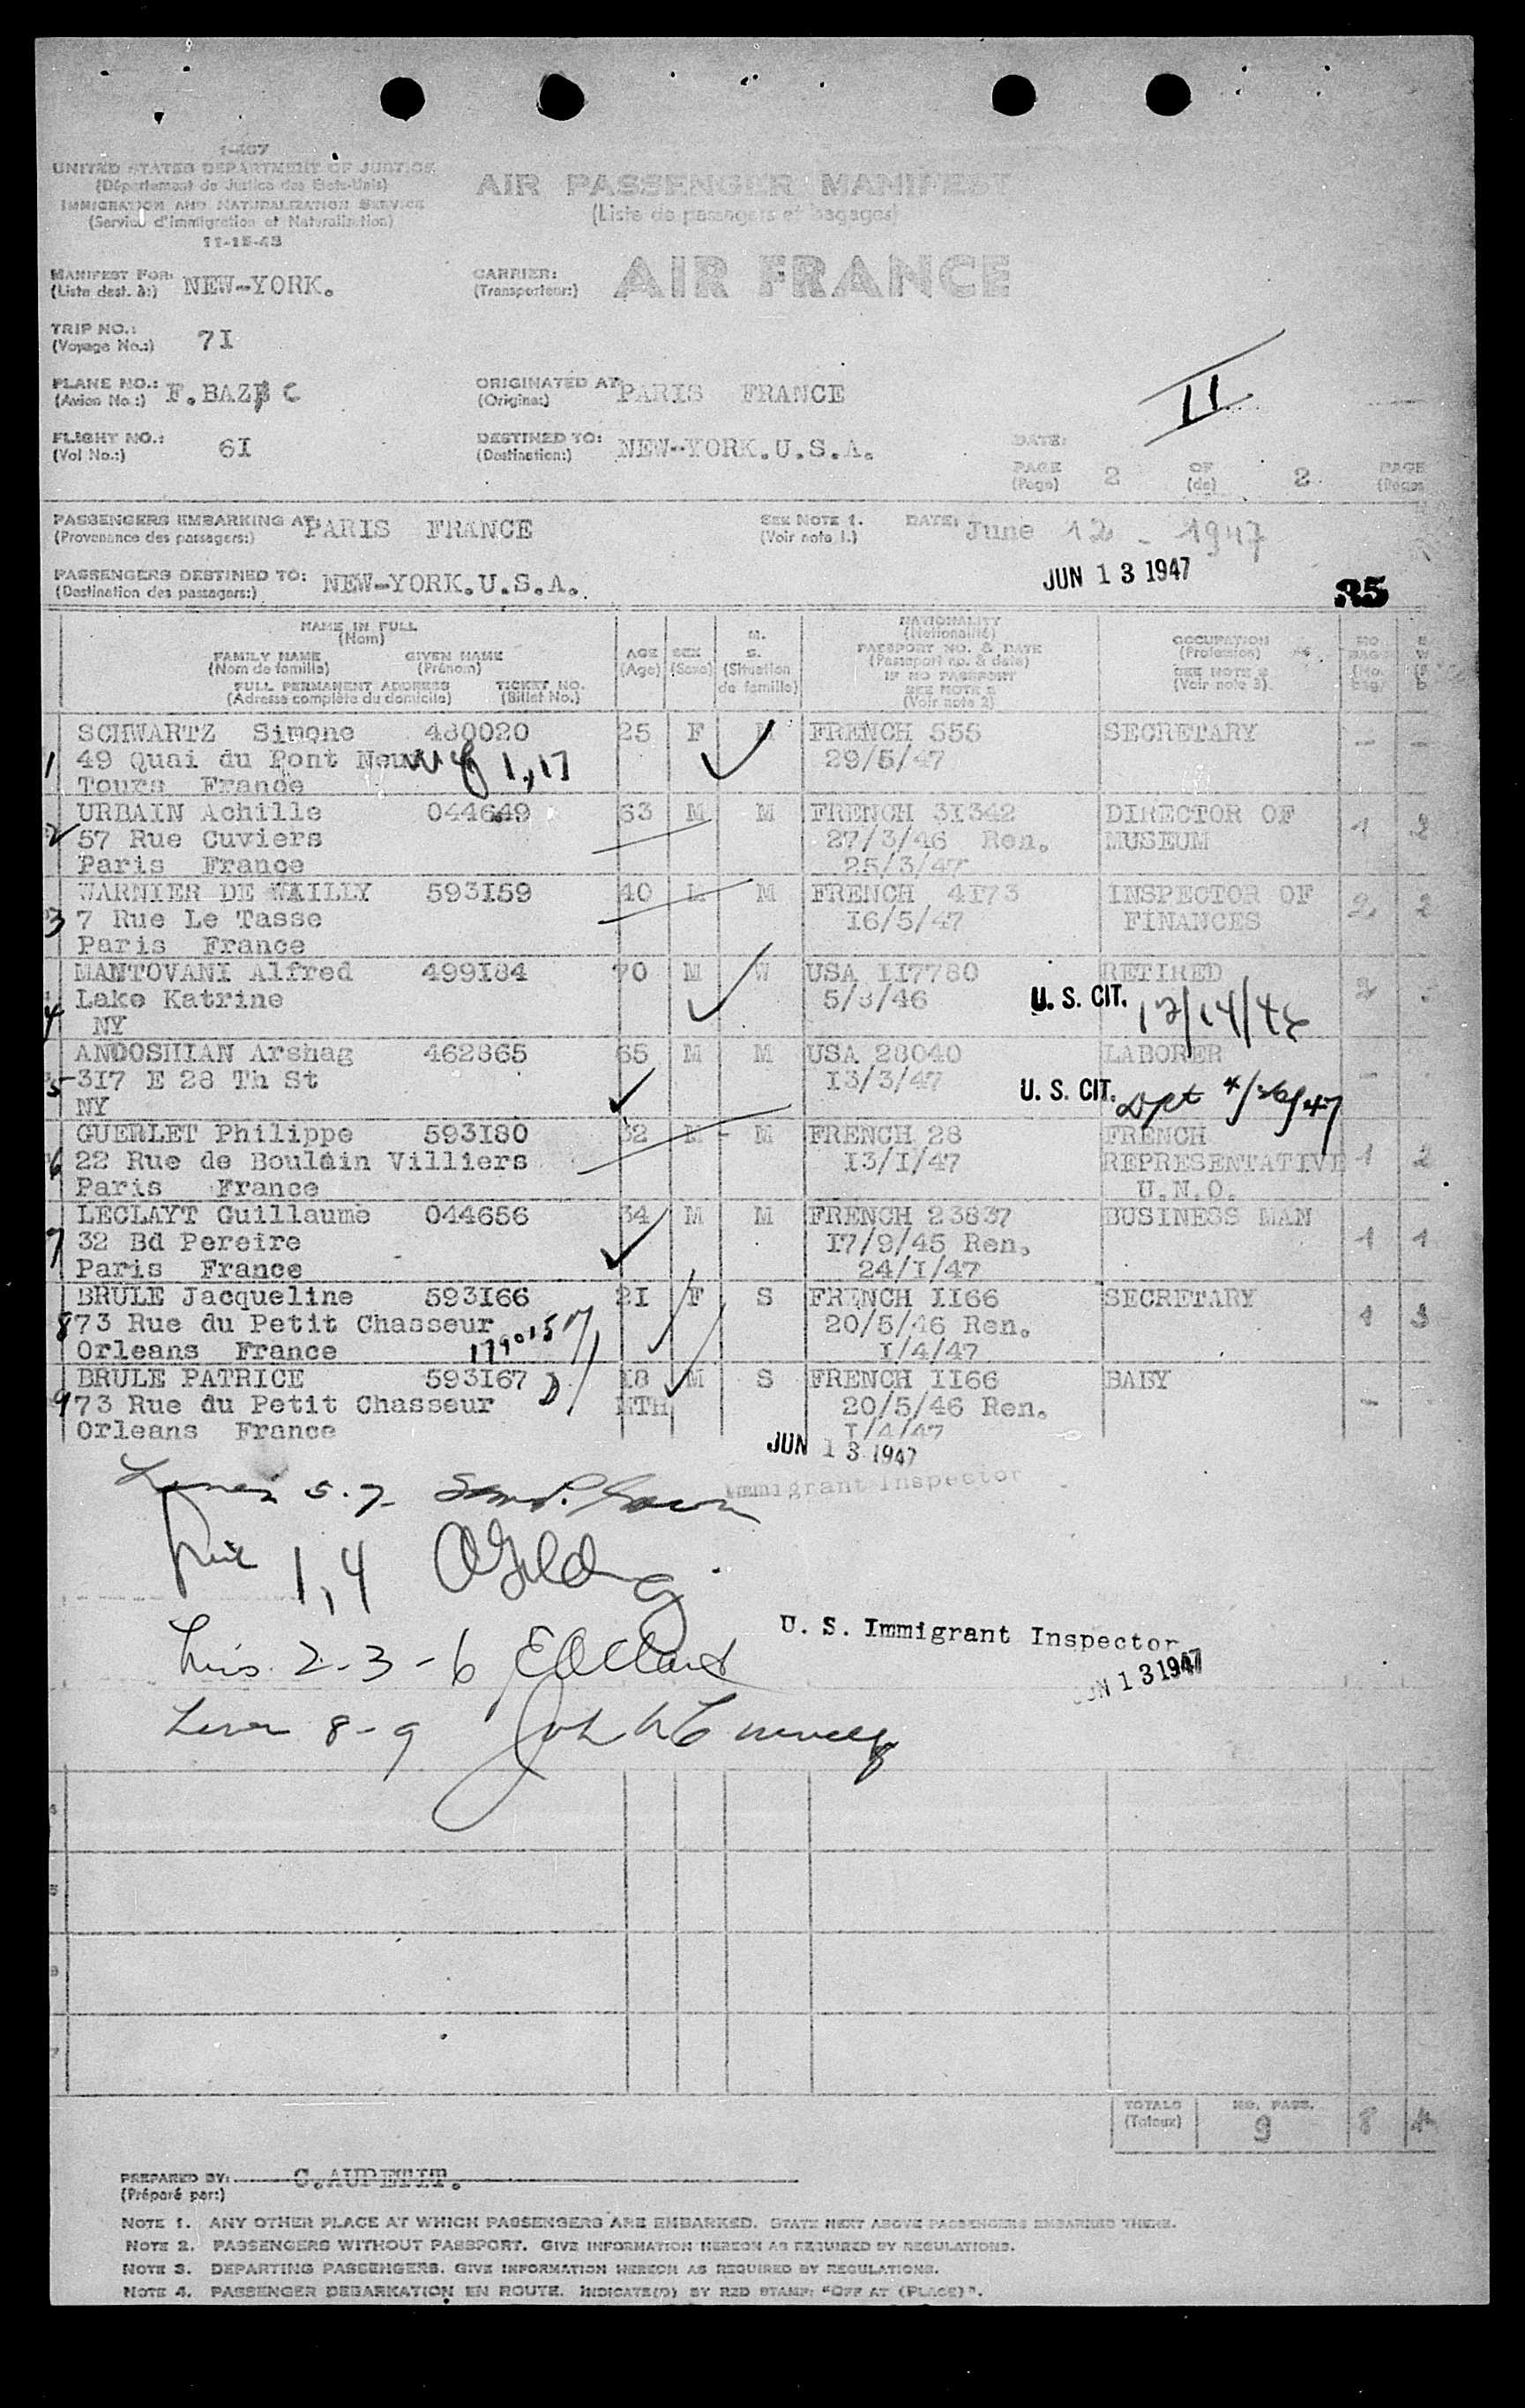 I-407
UNITED STATES DEPARTMENT OF JUSTICE
(Département de Justice des Etats-Unis)
IMMIGRATION AND NATURALIZATION SERVICE
(Service d'immigration et Naturalization)
11-15-43
AIR PASSENGER MANIFEST
(Liste de passagers et bagages)
MANIFEST FOR: NEW-YORK.
(Liste dest. à:)
CARRIER: AIR FRANCE
(Transporteur:)
TRIP NO.: 7I
(Voyage No.:)
PLANE NO.: F.BAZ C
(Avion No.:)
ORIGINATED AT PARIS FRANCE
(Origine:)
II
FLIGHT NO.: 6I
(Vol No.:)
DESTINED TO: NEW-YORK.U.S.A.
(Destination:)
DATE:
PAGE 2 OF 2 PAGE
(Page) (de) (Pages
PASSENGERS EMBARKING AT: PARIS FRANCE
(Provenance des passagers:)
SEE NOTE 1.
(Voir note 1.)
DATE: June 12 - 1947
JUN 13 1947
PASSENGERS DESTINED TO: NEW-YORK.U.S.A.
(Destination des passagers:)
35
NAME IN FULL
(Nom)
FAMILY NAME GIVEN NAME
(Nom de famille) (Prénom)
FULL PERMANENT ADDRESS TICKET NO.
(Adresse complète du domicile) (Billet No.)
AGE
(Age)
SEX
(Sexe)
M.
S.
(Situation
de famille)
NATIONALITY
(Nationalité)
PASSPORT NO. & DATE
(Passeport no. & date)
IF NO PASSPORT
SEE NOTE 2
(Voir note 2)
OCCUPATION
(Profession)
SEE NOTE 3
(Voir note 3)
NO.
BAGS
(No.
bag.)
1 SCHWARTZ Simone 480020 25 F M FRENCH 555 SECRETARY - -
49 Quai du Pont Neuf 1,17 29/5/47
Tours France
2 URBAIN Achille 044649 63 M M FRENCH 31342 DIRECTOR OF 1 2
57 Rue Cuviers 27/3/46 Ren. MUSEUM
Paris France 25/3/47
3 WARNIER DE WAILLY 593I59 40 M M FRENCH 4I73 INSPECTOR OF 2 2
7 Rue Le Tasse I6/5/47 FINANCES
Paris France
4 MANTOVANI Alfred 499I84 70 M W USA II7780 RETIRED 2
Lake Katrine 5/8/46 U. S. CIT. 12/14/46
NY
5 ANDOSHIAN Arshag 462865 65 M M USA 28040 LABORER -
3I7 E 28 Th St I3/3/47 U. S. CIT. Dpt 4/26/47
NY
6 GUERLET Philippe 593I80 32 M M FRENCH 28 FRENCH
22 Rue de Boulain Villiers I3/I/47 REPRESENTATIVE 1 2
Paris France U.N.O.
7 LECLAYT Guillaume 044656 34 M M FRENCH 23837 BUSINESS MAN
32 Bd Pereire I7/9/45 Ren. 1 1
Paris France 24/I/47
8 BRULE Jacqueline 593I66 2I F S FRENCH II66 SECRETARY
73 Rue du Petit Chasseur 20/5/46 Ren. 1 3
Orleans France I/4/47
9 BRULE PATRICE 593I67 I8 M S FRENCH II66 BABY
73 Rue du Petit Chasseur MTH 20/5/46 Ren. -
Orleans France I/4/47
JUN 13 1947
Lines 5.7
Immigrant Inspector
1,4
U. S. Immigrant Inspector
2-3-6
JUN 13 1947
8-9 John
TOTALS
(Totaux)
NO. PASS.
9 8
PREPARED BY: C.AUPETIT.
(Préparé par:)
NOTE 1. ANY OTHER PLACE AT WHICH PASSENGERS ARE EMBARKED. STATE NEXT ABOVE PASSENGERS EMBARKED THERE.
NOTE 2. PASSENGERS WITHOUT PASSPORT. GIVE INFORMATION HEREON AS REQUIRED BY REGULATIONS.
NOTE 3. DEPARTING PASSENGERS. GIVE INFORMATION HEREON AS REQUIRED BY REGULATIONS.
NOTE 4. PASSENGER DEBARKATION EN ROUTE. INDICATE(D) BY RED STAMP: "OFF AT (PLACE)".